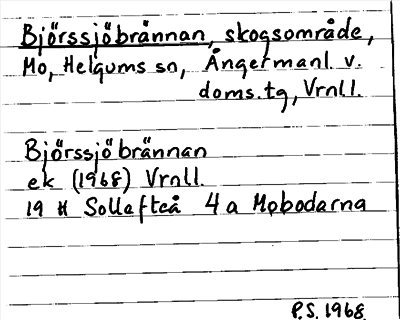 Björssjöbrännan, skogsområde,
Mo, Helgums sn, Ångermanl. v.
doms.tg, Vrnll.
Björssjöbrännan
ek (1968) Vrnll.
19 H Sollefteå 4a Mobodarna
P.S. 1968